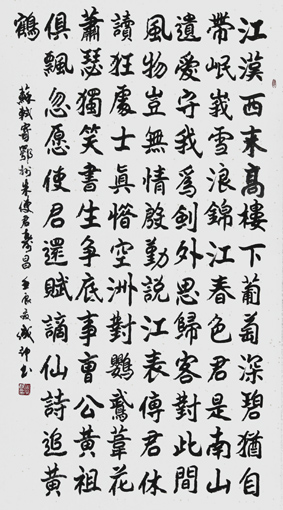 江漢西来高樓下葡萄深碧猶自
帶岷峩雪浪錦江春色君是南山
遺愛守我為劍外思歸客對此間
風物豈無情殷勤説江表傳君休
讀狂處士真惜空洲對鸚鵡葦花
蕭瑟獨笑書生爭底事曹公黃祖
俱飄忽愿使君還賦謫仙詩追黃
鶴
蘇軾寄鄂州朱使君壽昌壬辰